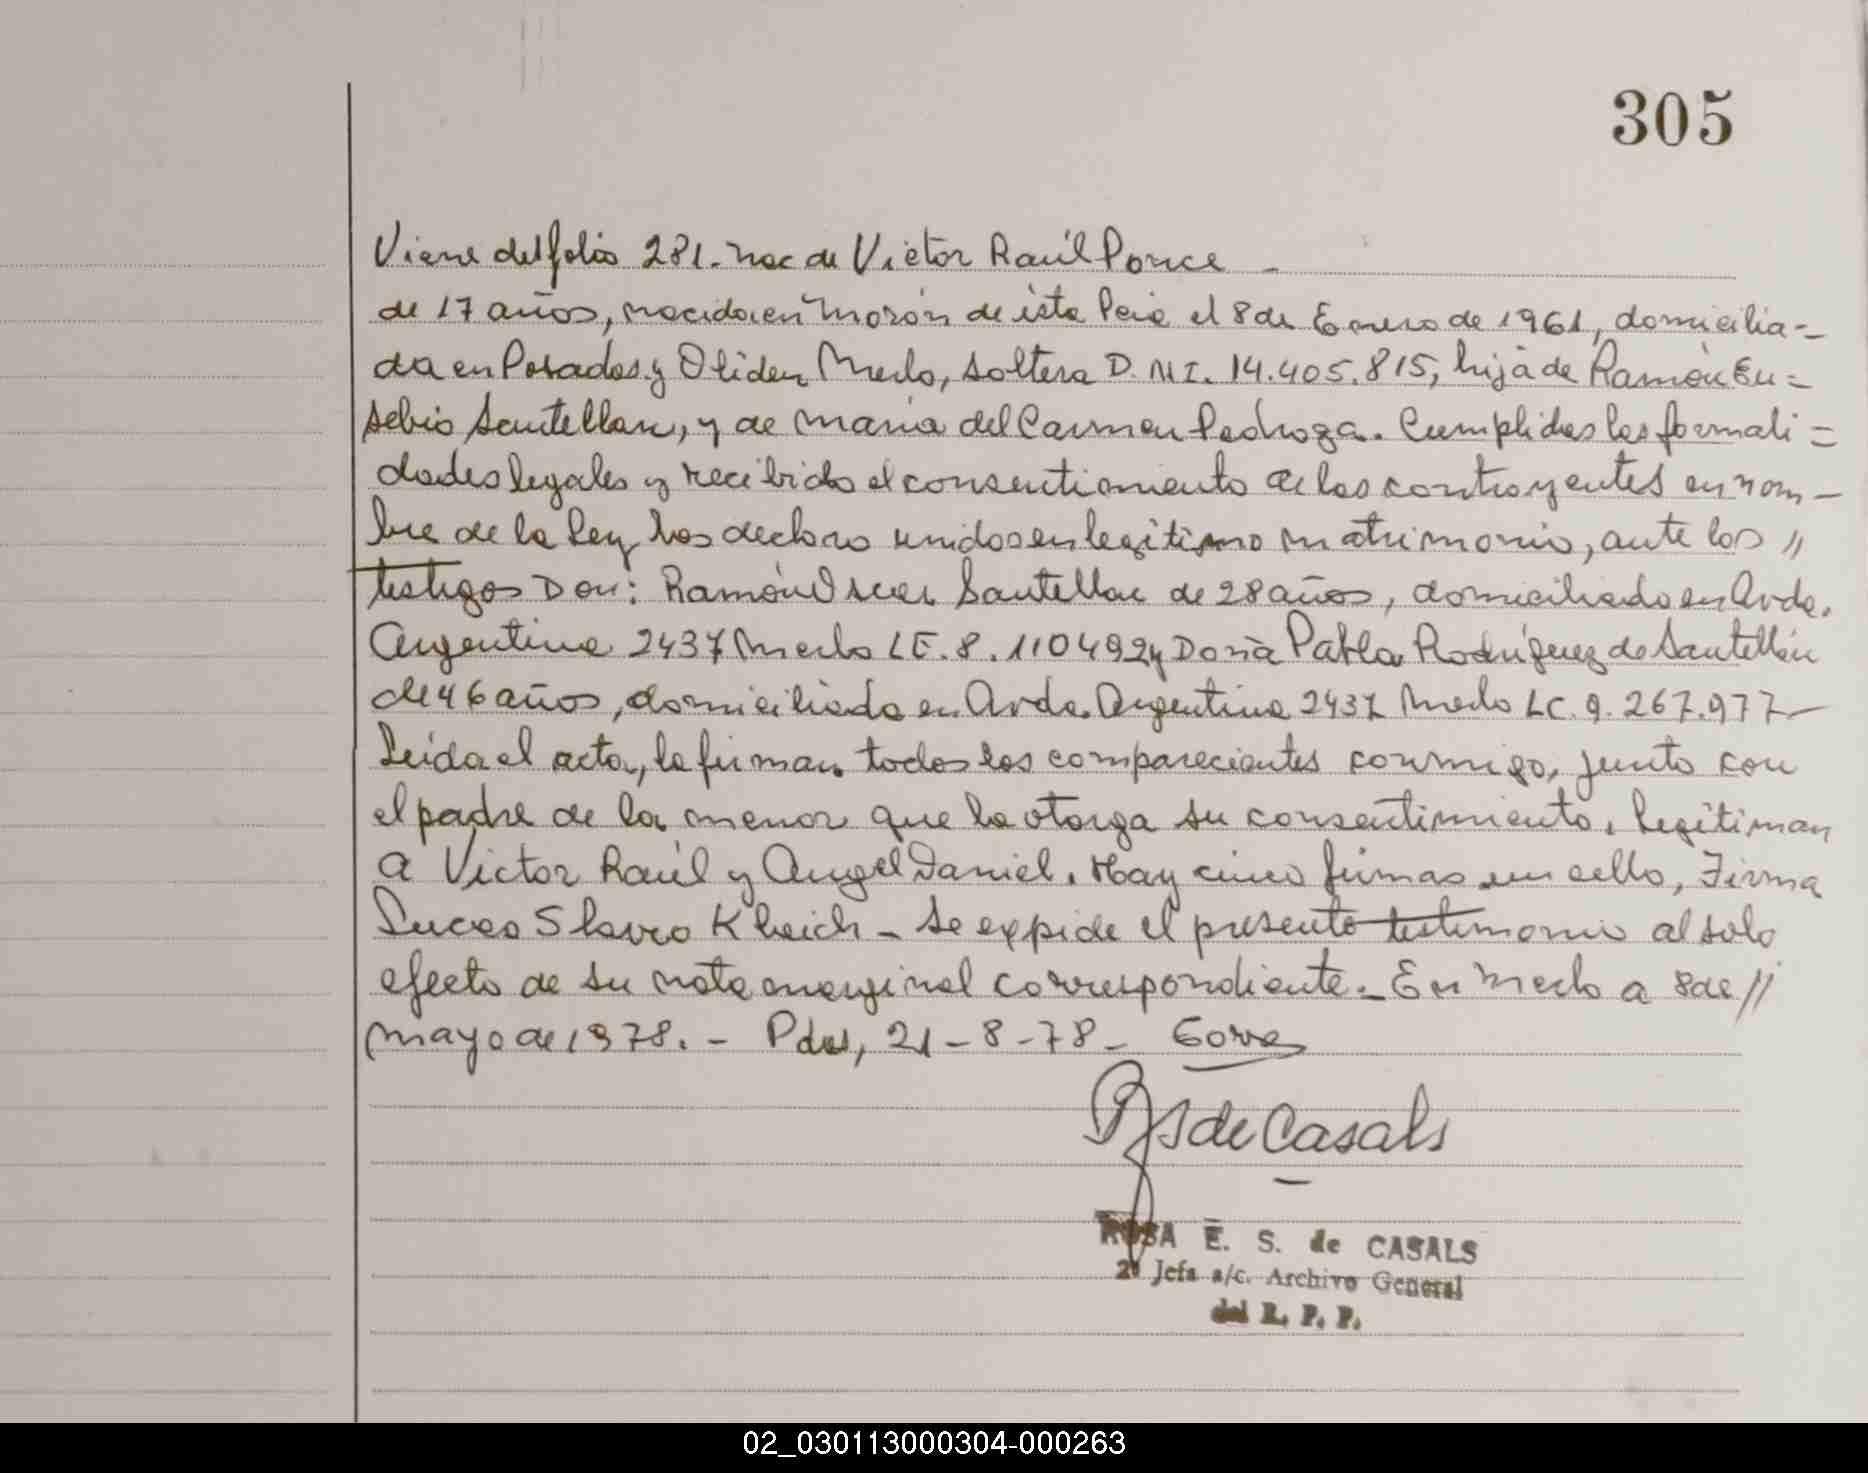 305
Viene del folio 281. nac de Victor Raúl Ponce -
de 17 años, nacida en Morón de ésta Pcia el 8 de Enero de 1961, domicilia=
da en Posadas y Oliden Merlo, soltera D.N.I. 14.405.815, hija de Ramón Eu=
sebio Santellan, y de maria del Carmen Pedroza. Cumplidas las formali=
dades legales y recibido el consentimiento de los contrayentes en nom-
bre de la Ley los declaro unidos en legitimo matrimonio, ante los //
testigos Don: Ramón Oscar Santellan de 28 años, domiciliado en Avda.
Argentina 2437 Merlo LE. 8.110492 y Doña Pabla Rodríguez de Santellán
de 46 años, domiciliada en Avda. Argentina 2437 Merlo LC. 9.267.977-
Leida el acta, la firman todos los comparecientes conmigo, junto con
el padre de la menor que la otorga su consentimiento. Legitiman
a Victor Raúl y Angel Daniel. Hay cinco firmas un sello, Firma
Lucas Slavco - Se expide el presente testimonio al solo
efecto de su nota marginal correspondiente. - En Merlo a 8 de //
mayo de 1978. - Pdas, 21-8-78-
RS de Casals
ROSA E. S. de CASALS
2ª Jefa a/c. Archivo General
del R. P. P.
02_030113000304-000263